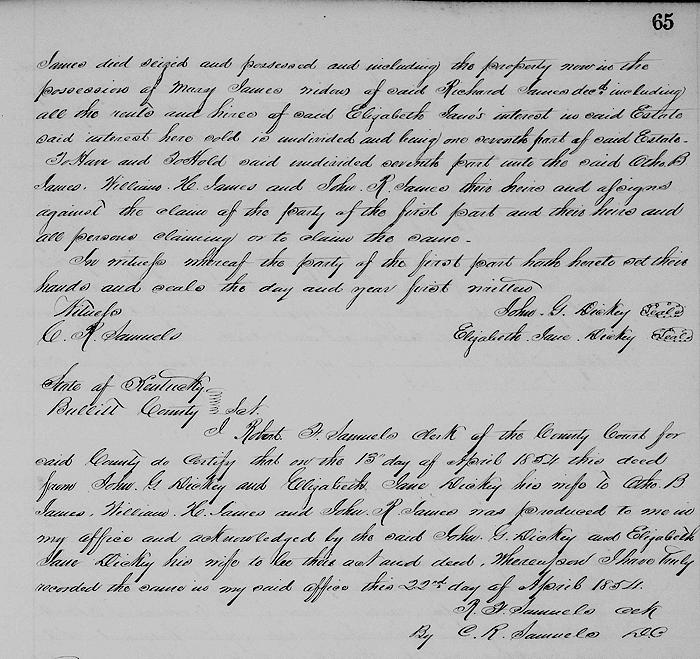 65
James died seized and possessed and including the property now in the
possession of Mary James widow of said Richard James decd. including
all the rents and hires of said Elizabeth Jane's interest in said Estate
said interest here sold is undivided and being one seventh part of said Estate -
To Have and To Hold said undivided seventh part unto the said Otho. B
James, William H. James and John. R. James their heirs and assigns
against the claim of the party of the first part and their heirs and
all persons claiming or to claim the same -
In witness whereof the party of the first part hath hereto set their
hands and seals the day and year first written
Witness John. G. Dickey Seal
C. R. Samuels Elizabeth Jane Dickey Seal
State of Kentucky
Bullitt County Sct.
I Robert. F. Samuels clerk of the County Court for
said County do certify that on the 13th day of April 1854 this deed
from John. G. Dickey and Elizabeth Jane Dickey his wife to Otho. B
James, William. H. James and John. R. James was produced to me in
my office and acknowledged by the said John. G. Dickey and Elizabeth
Jane Dickey his wife to be their act and deed, Whereupon I have truly
recorded the same in my said office this 22nd day of April 1854.
R. F. Samuels clk
By C. R. Samuels DC